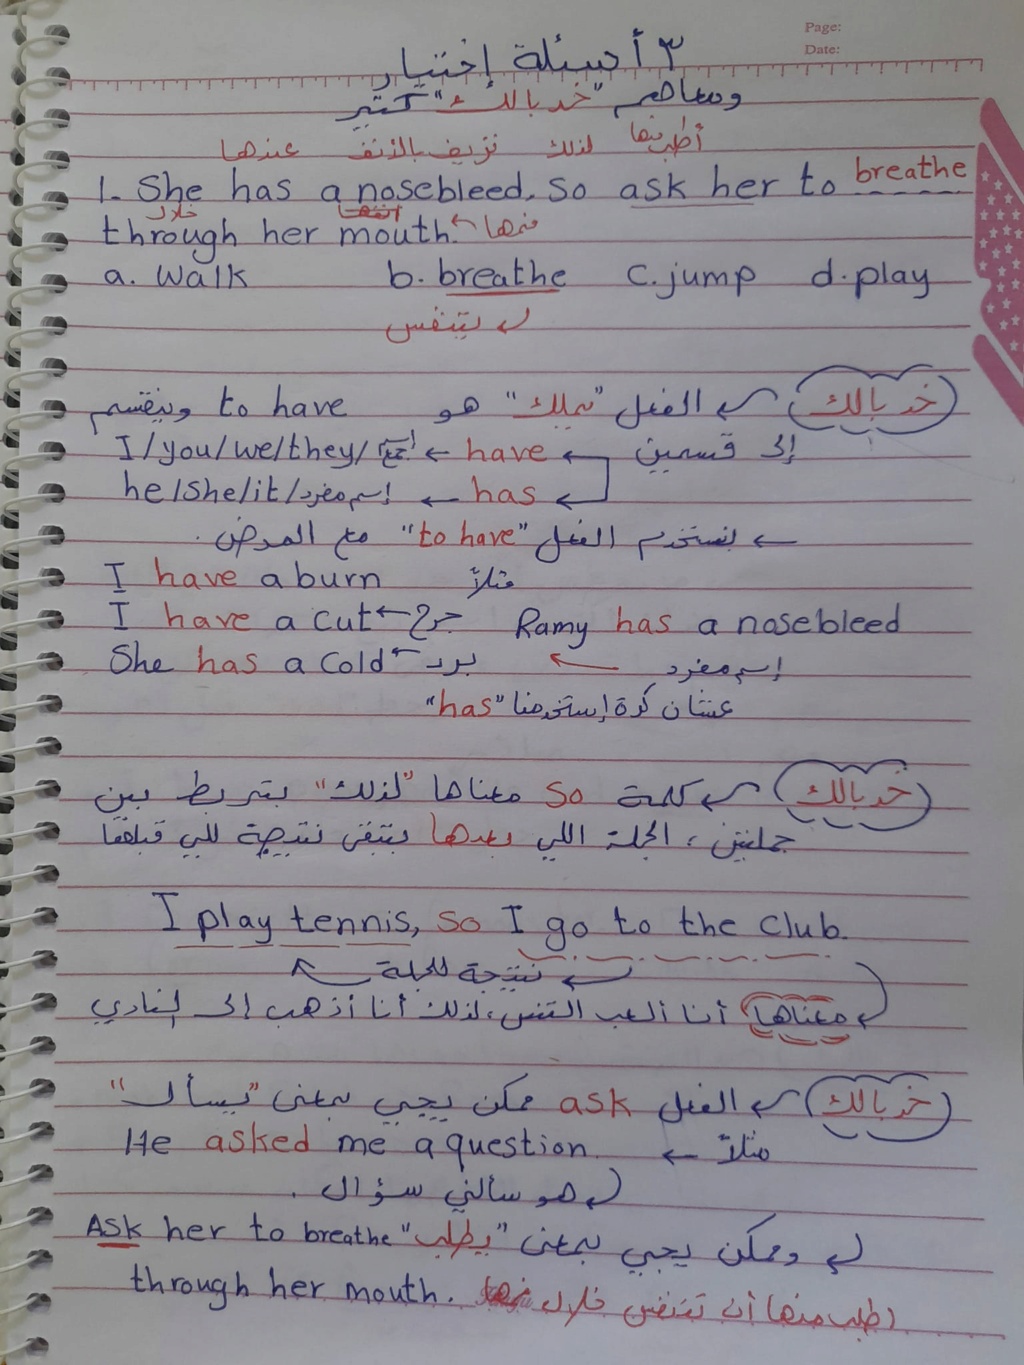 Page:
Date:
٣ أسئلة إختيار
ومعاهم "خد بالك" كتير
عندها نزيف بالأنف لذلك أطلب منها
1. She has a nosebleed. So ask her to breathe
خلال فمها
through her mouth.
a. walk b. breathe c. jump d. play
يتنفس
خد بالك الفعل "يملك" هو to have وبيقسم
إلى قسمين have ← I/you/we/they/جمع
has ← he/she/it/إسم مفرد
← بنستخدم الفعل "to have" مع المرض.
I have a burn مثلاً
I have a cut ← جرح Ramy has a nosebleed
She has a cold ← برد إسم مفرد
عشان كدة إستخدمنا "has"
خد بالك كلمة so معناها "لذلك" بتربط بين
جملتين، الجملة اللي بعدها بتبقى نتيجة للي قبلها
I play tennis, so I go to the club.
نتيجة للجملة
معناها أنا ألعب التنس، لذلك أنا أذهب إلى النادي
خد بالك الفعل ask ممكن يجي بمعنى "يسأل"
مثلاً ← He asked me a question.
هو سألني سؤال.
وممكن يجي بمعنى "يطلب" Ask her to breathe
through her mouth. اطلب منها أن تتنفس خلال فمها